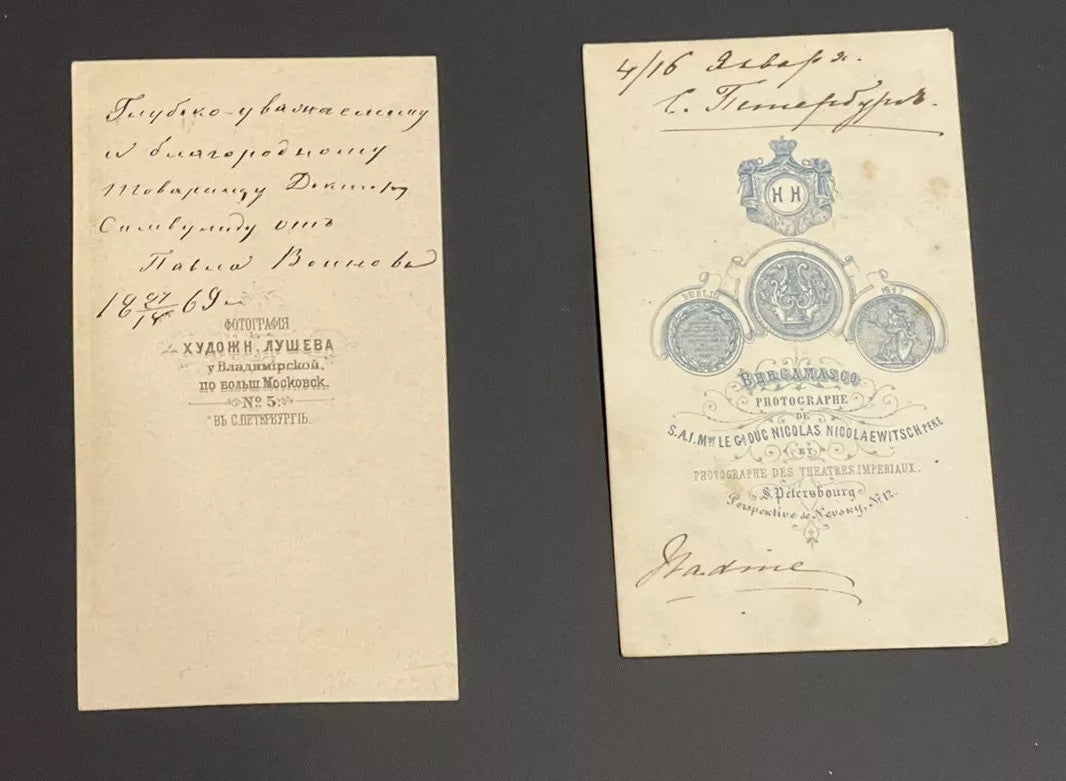 Глубоко-уважаемому
и благородному
товарищу
отъ
Павла Воинова
18 27/14 69
ФОТОГРАФІЯ
ХУДОЖН. ЛУШЕВА
у Владимірской,
по больш Московск.
№ 5.
ВЪ С.ПЕТЕРБУРГѢ.
4/16 Января.
С. Петербургъ.
Н Н
BERLIN
BERGAMASCO
PHOTOGRAPHE
DE
S.A.I. Mgr LE Gd DUC NICOLAS NICOLAEWITSCH PERE
ET
PHOTOGRAPHE DES THEATRES IMPERIAUX.
S. Pétersbourg
Perspektive de Nevsky, № 12.
Nadine